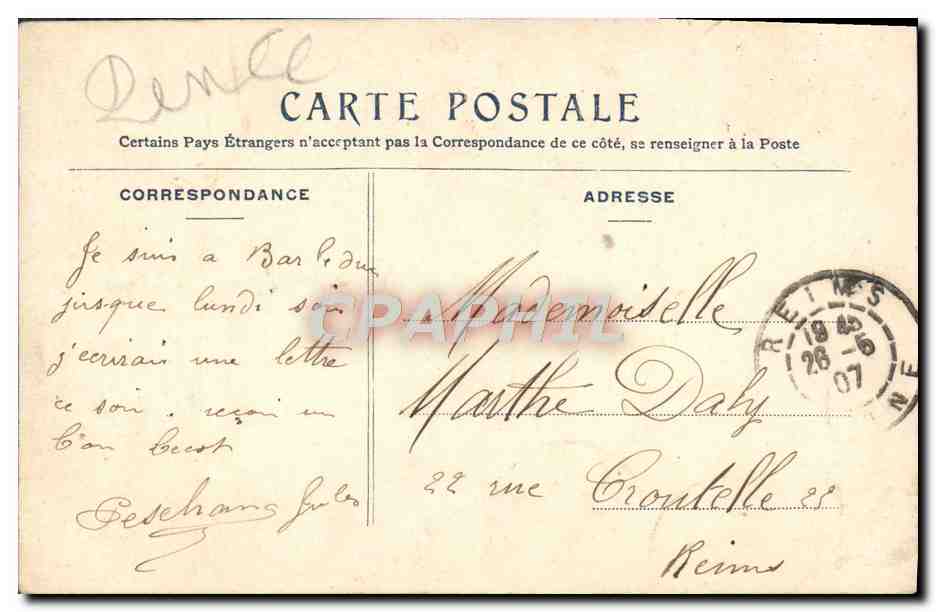 Renée
CARTE POSTALE
Certains Pays Étrangers n'acceptant pas la Correspondance de ce côté, se renseigner à la Poste
CORRESPONDANCE
ADRESSE
Je suis a Bar le duc
jusque lundi soir
j'ecrirais une lettre
ce soir. reçoi un
bon
Jules
Mademoiselle
Marthe Daly
22 rue Croutelle 22
Reims
REIMS
19 45
26 -5
07
NE
CPAPHIL